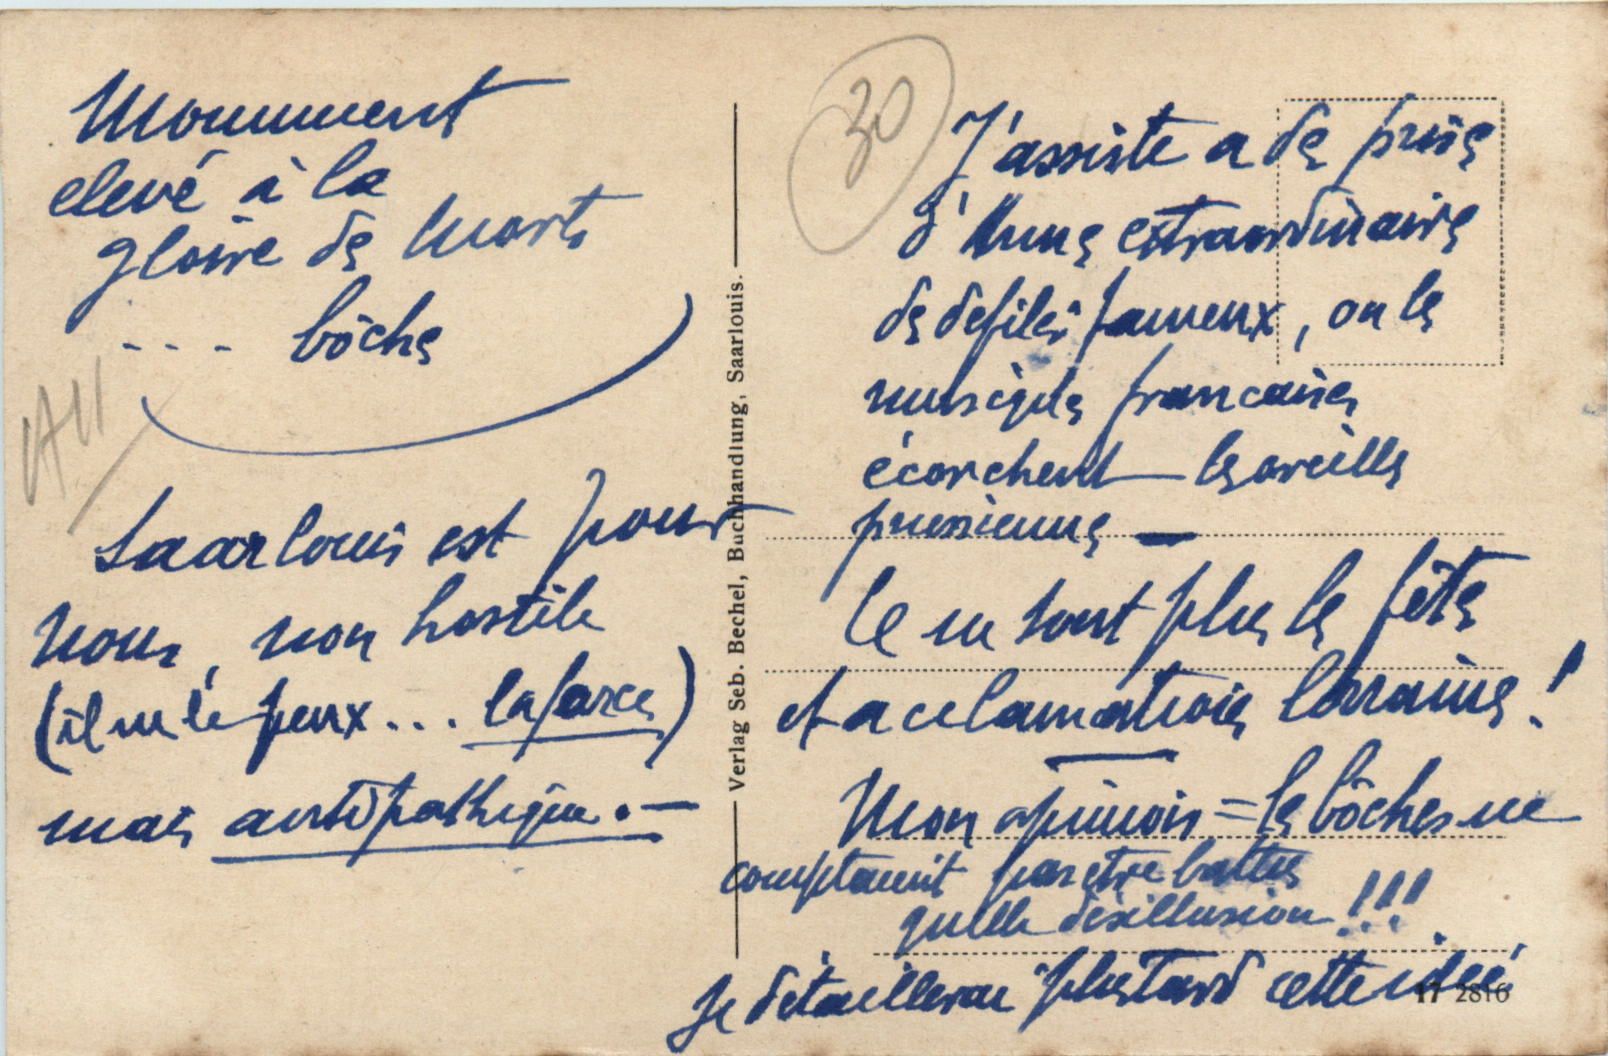 Monument
elevé à la
gloire de morts
... bôche
Saarlouis est pour
nous, non hostile
(il ne le peux... la farce)
mais antipathique. —
Verlag Seb. Bechel, Buchhandlung, Saarlouis.
30
J'assiste a de prise
d'Arme extraordinaire
de defiles fameux, ou le
musique francaise
écorchent les oreilles
prussienne —
Ce ne sont plus le fête
et acclamation lorraine !
Mon opinion = le bôches ne
comptaient pas etre battus
quelle désillusion !!!
Je détaillerai plus tard cette idée
17 2816